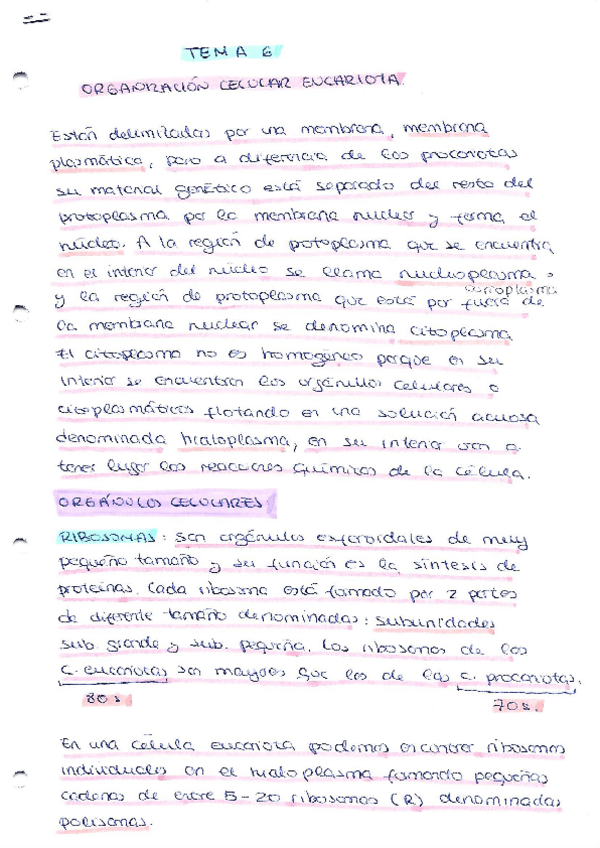 TEMA 6
ORGANIZACIÓN CELULAR EUCARIOTA.
Están delimitadas por una membrana, membrana
plasmática, pero a diferencia de las procariotas
su material genético está separado del resto del
protoplasma por la membrana nuclear y forma el
núcleo. A la región de protoplasma que se encuentra
en el interior del núcleo se llama nucleoplasma o
carioplasma
y la región de protoplasma que está por fuera de
la membrana nuclear se denomina citoplasma
El citoplasma no es homogéneo porque en su
interior se encuentran los orgánulos celulares o
citoplasmáticos flotando en una solución acuosa
denominada hialoplasma, en su interior van a
tener lugar las reacciones químicas de la célula.
ORGÁNULOS CELULARES
RIBOSOMAS: son orgánulos esferoidales de muy
pequeño tamaño y su función es la síntesis de
proteínas. Cada ribosoma está formado por 2 partes
de diferente tamaño denominadas: subunidades
sub grande y sub. pequeña. Los ribosomas de las
C. eucariotas son mayores que los de las C. procariotas.
80s.
70s.
En una célula eucariota podemos encontrar ribosomas
individuales en el hialoplasma formando pequeñas
cadenas de entre 5-20 ribosomas (R) denominadas
polisomas.